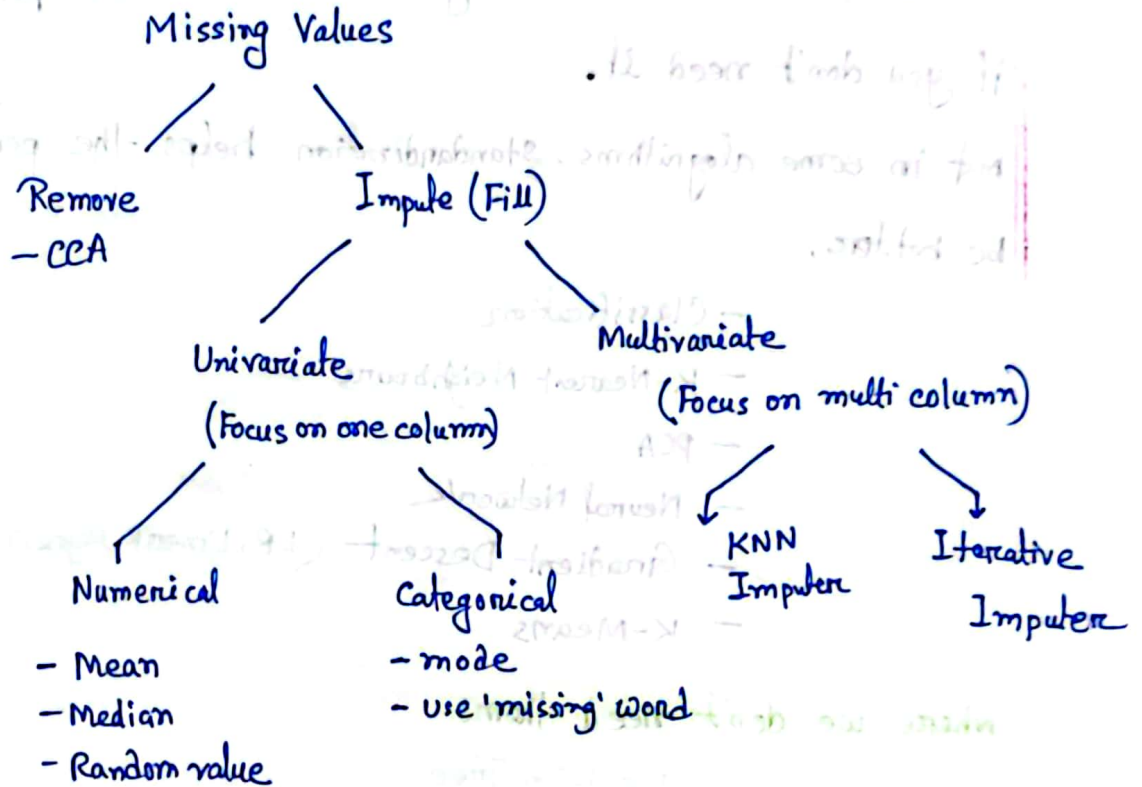 Missing Values
Remove
- CCA
Impute (Fill)
Univariate
(Focus on one column)
Multivariate
(Focus on multi column)
Numerical
- Mean
- Median
- Random value
Categorical
- mode
- use 'missing' word
KNN
Imputer
Iterative
Imputer